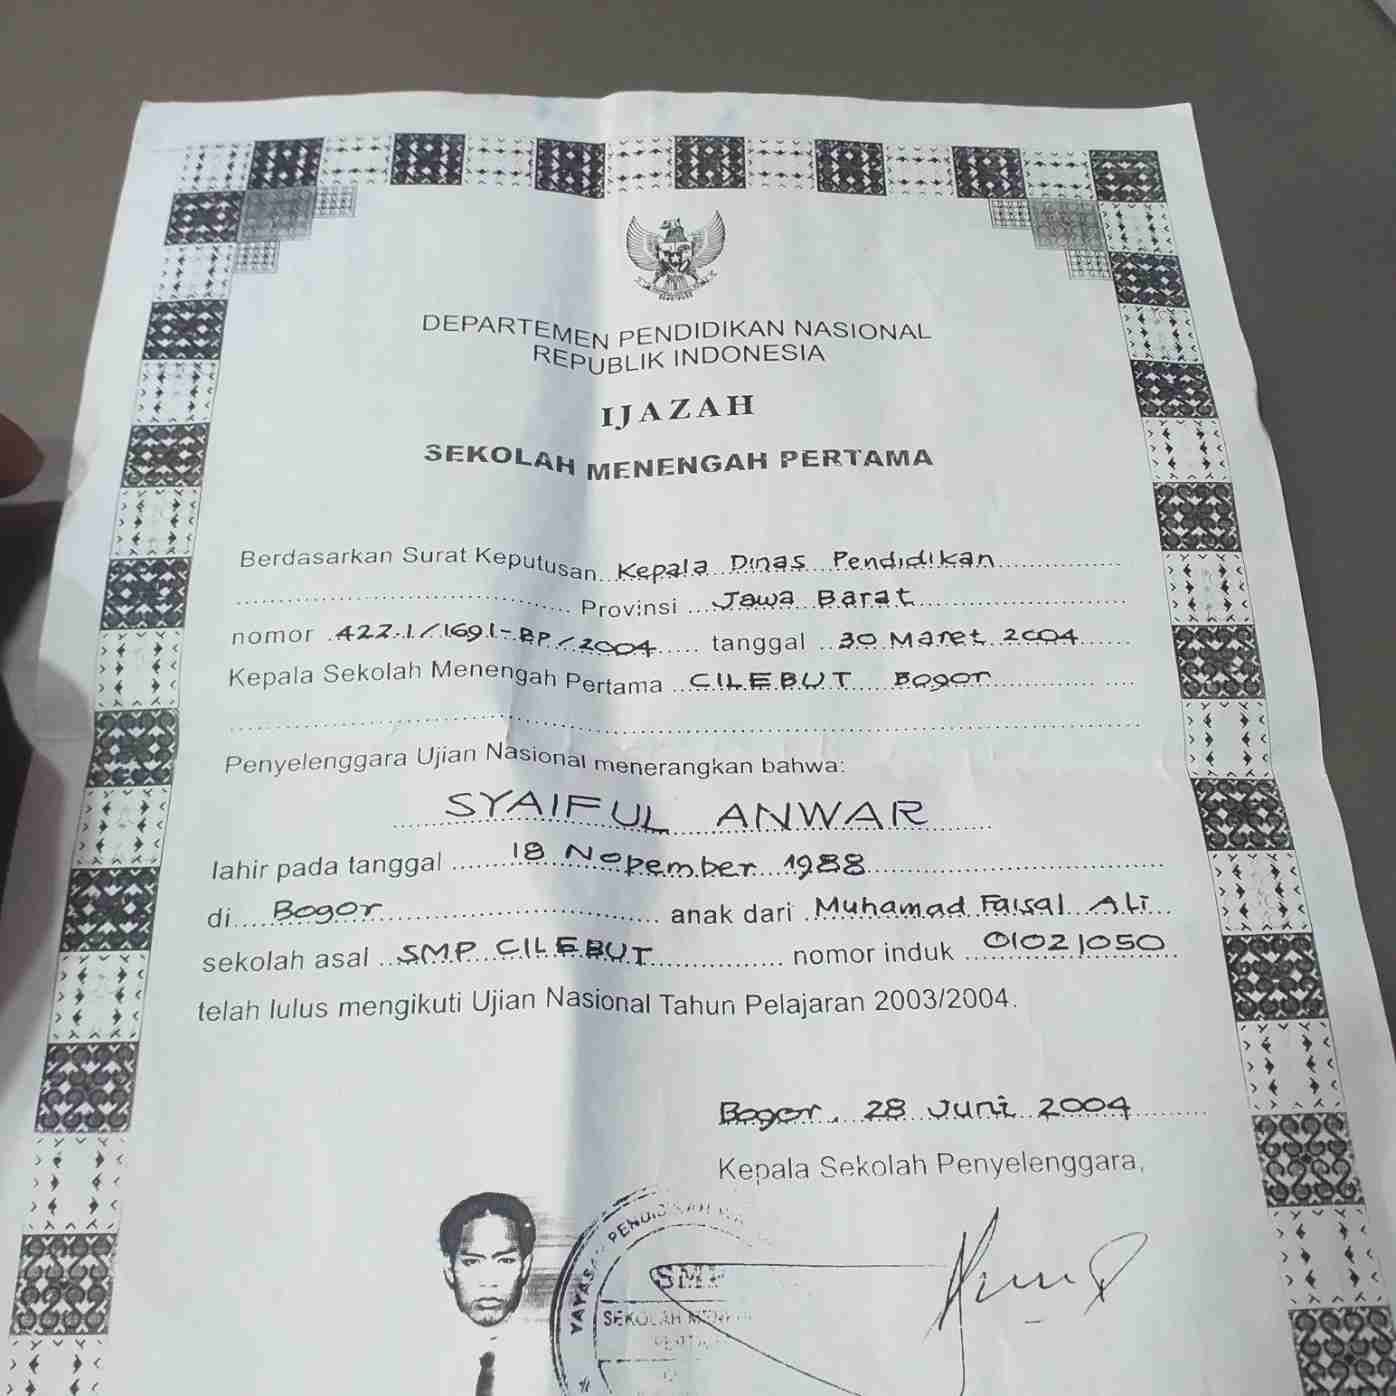 DEPARTEMEN PENDIDIKAN NASIONAL
REPUBLIK INDONESIA
IJAZAH
SEKOLAH MENENGAH PERTAMA
Berdasarkan Surat Keputusan Kepala Dinas Pendidikan
Provinsi Jawa Barat
nomor 422.1/1691-BP/2004 tanggal 30 Maret 2004
Kepala Sekolah Menengah Pertama CILEBUT Bogor
Penyelenggara Ujian Nasional menerangkan bahwa:
SYAIFUL ANWAR
lahir pada tanggal 18 Nopember 1988
di Bogor anak dari Muhamad Faisal Ali
sekolah asal SMP CILEBUT nomor induk 01021050
telah lulus mengikuti Ujian Nasional Tahun Pelajaran 2003/2004.
Bogor, 28 Juni 2004
Kepala Sekolah Penyelenggara,
YAYASAN PENDIDIKAN
SMP
SEKOLAH